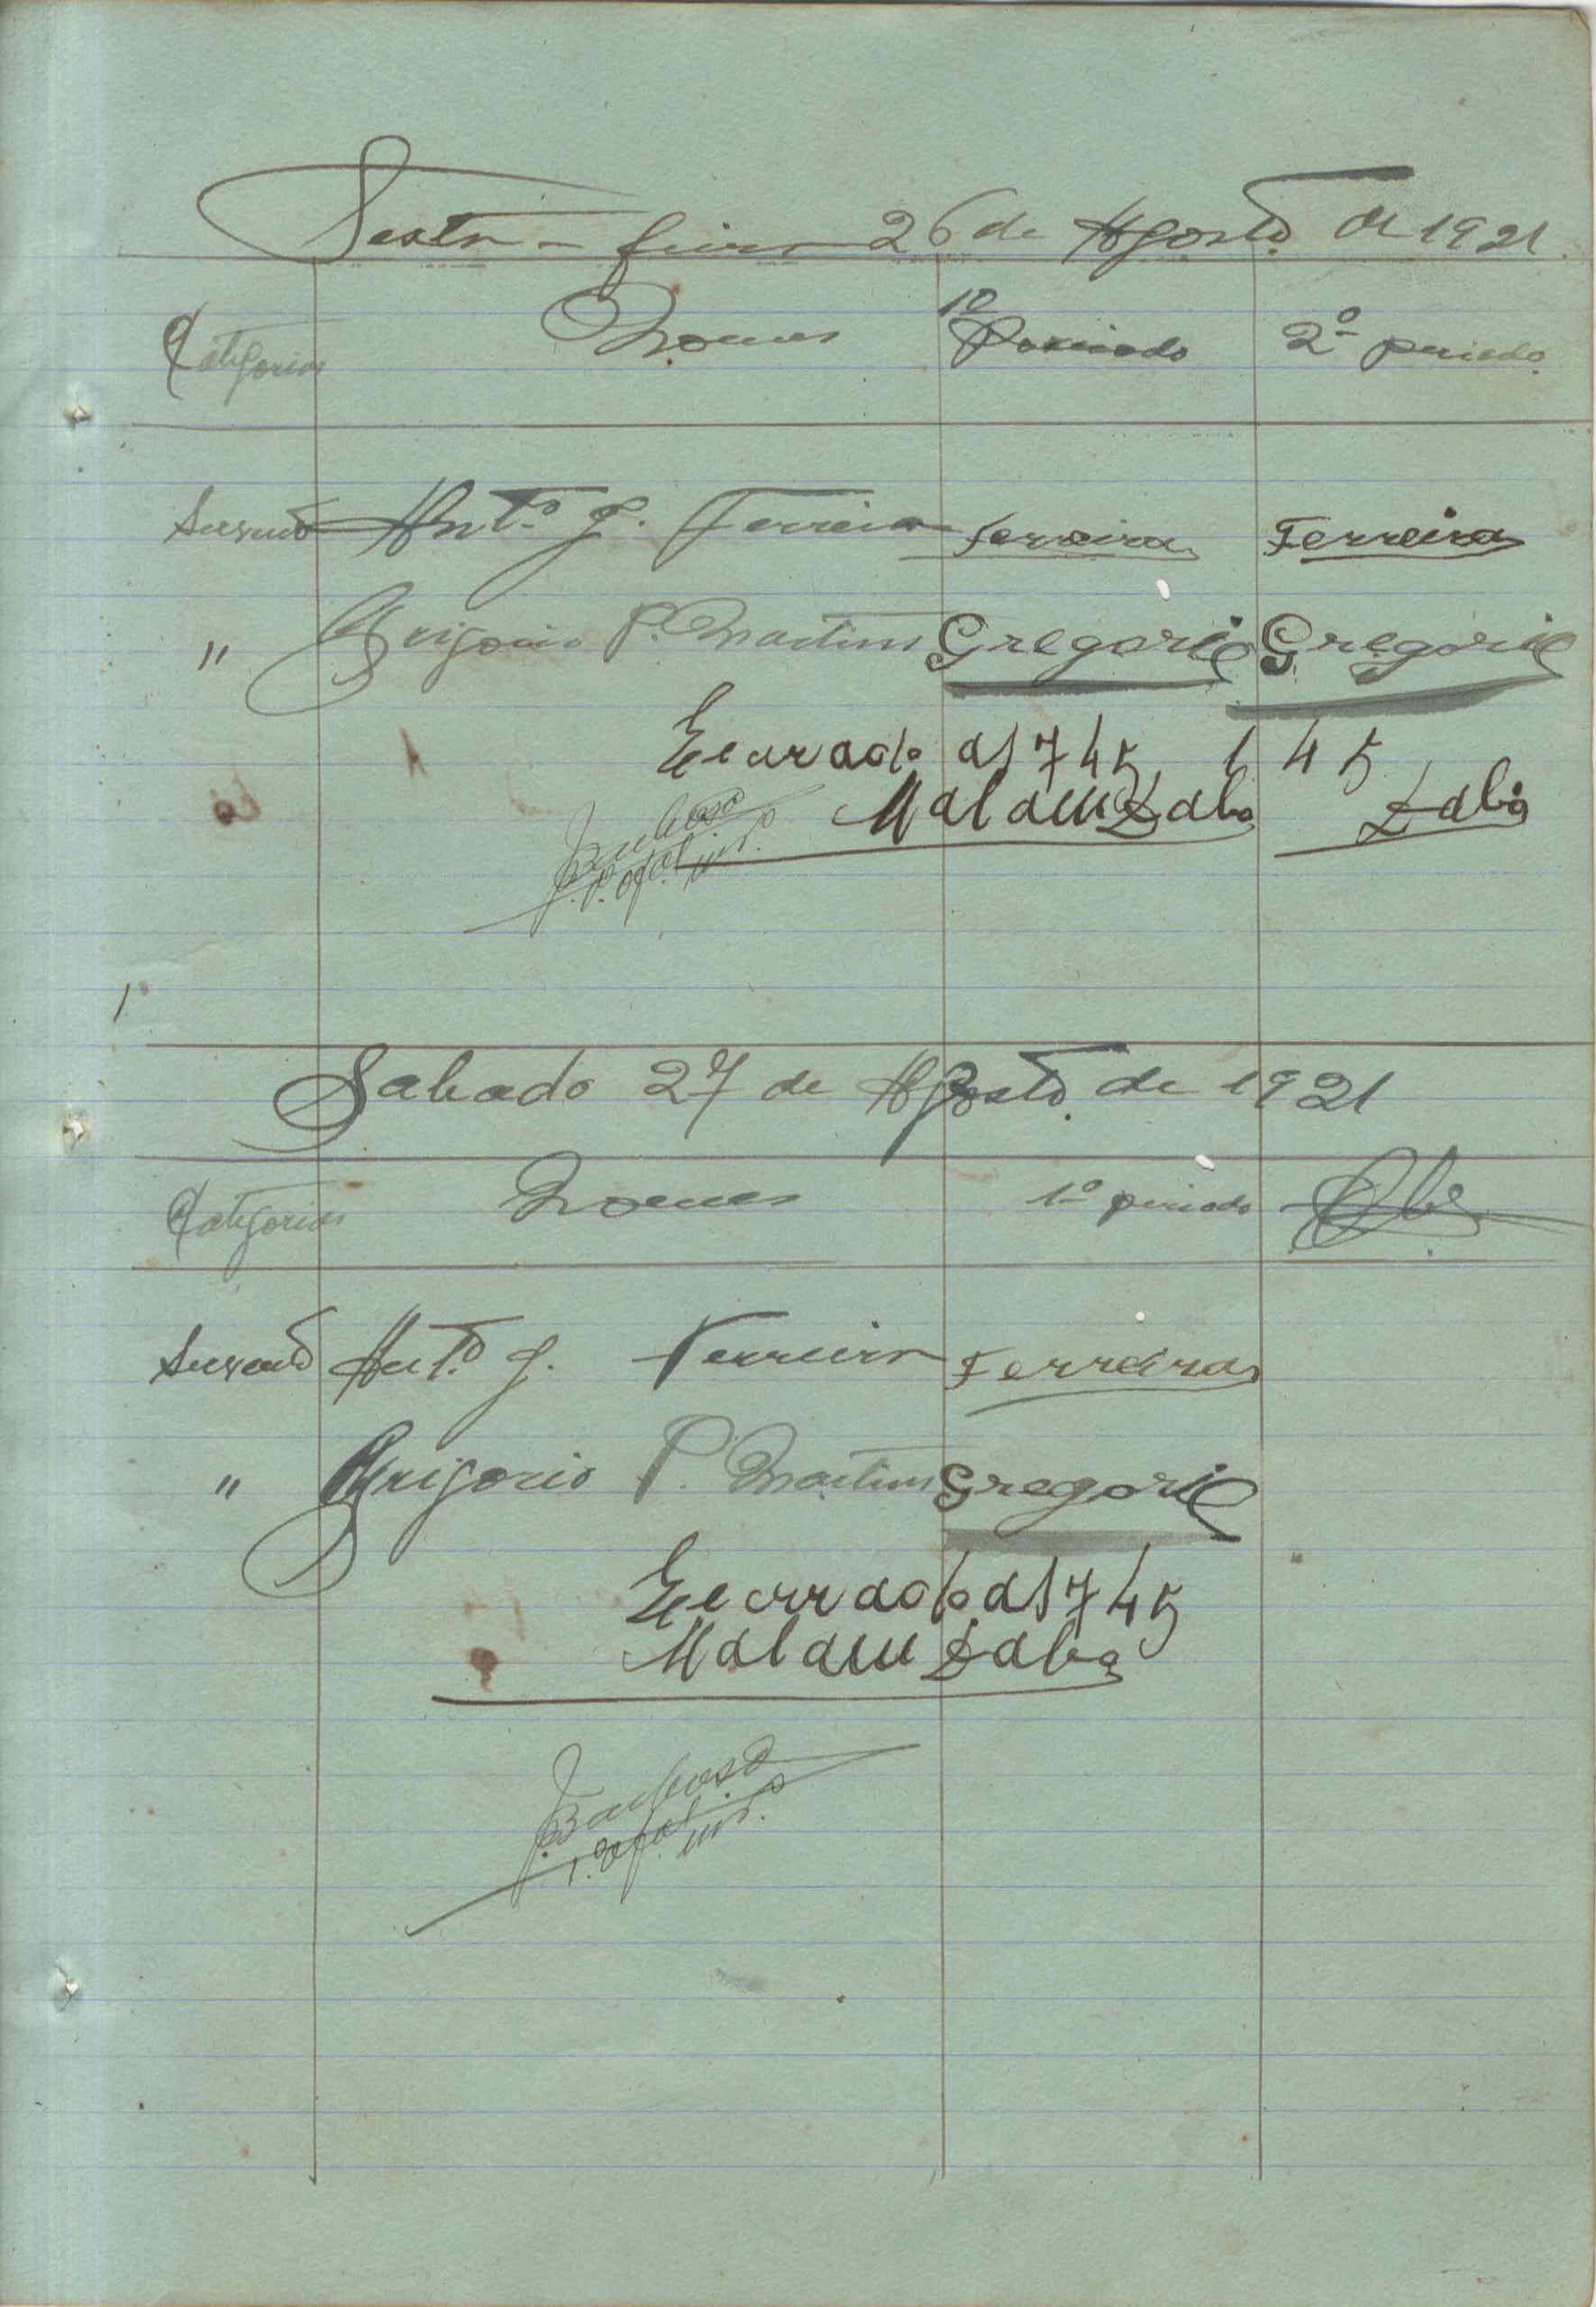 Sexta-feira 26 de Agosto de 1921
Categorias Nomes 1º Periodo 2º periodo
Servente Antº J. Ferreira Ferreira Ferreira
" Grigorio P. Martins Gregorio Gregorio
Encerrado as 7 45 1 45
Malam Dabo Dabo
Barbosa
Sabado 27 de Agosto de 1921
Categorias Nomes 1º periodo
Servente Antº J. Ferreira Ferreira
" Grigorio P. Martins Gregorio
Encerrado as 7 45
Malam Dabo
JBarbosa